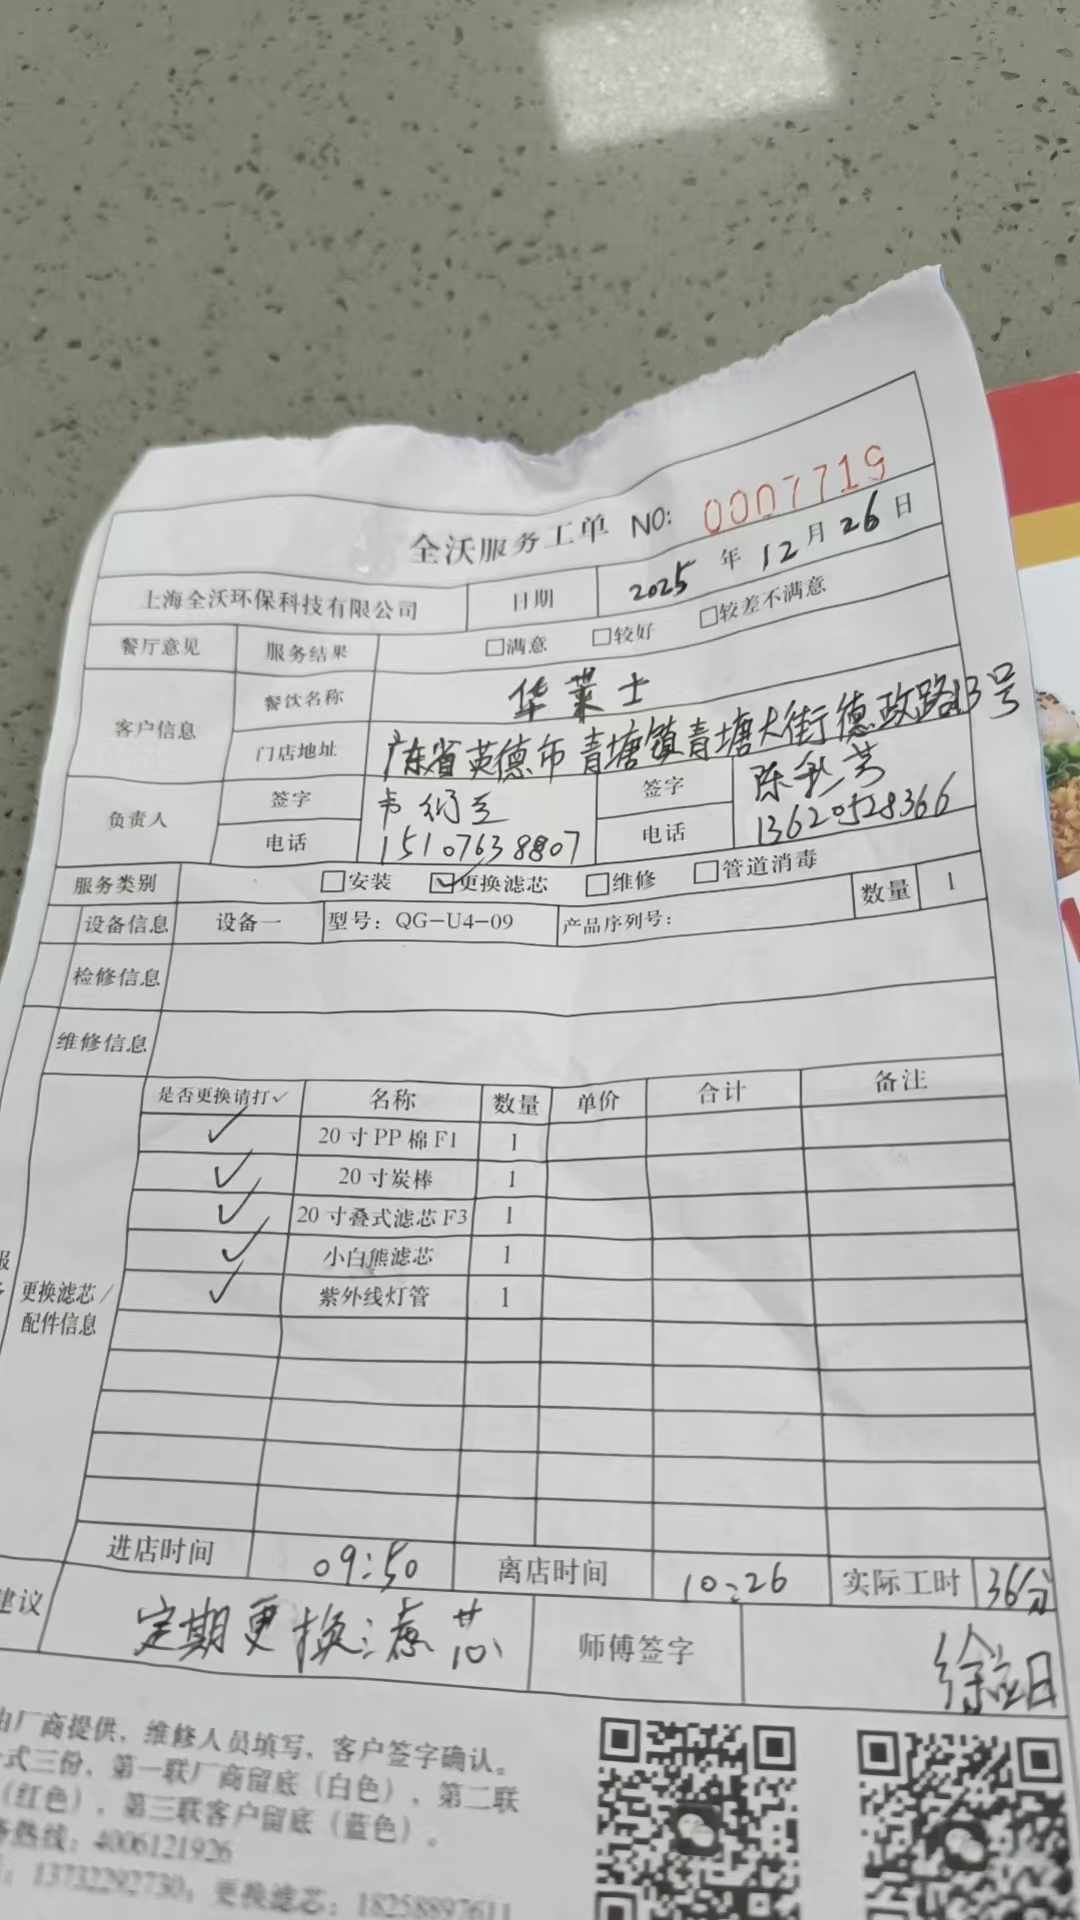 全沃服务工单 NO: 0007719
上海全沃环保科技有限公司 日期 2025 年 12 月 26 日
餐厅意见 服务结果 □满意 □较好 □较差不满意
客户信息 餐饮名称 华莱士
门店地址 广东省英德市青塘镇青塘大街德政路13号
负责人 签字 签字 陈
电话 15107638807 电话 13620528366
服务类别 □安装 ☑更换滤芯 □维修 □管道消毒
设备信息 设备一 型号：QG-U4-09 产品序列号： 数量 1
检修信息
维修信息
是否更换请打✓ 名称 数量 单价 合计 备注
✓ 20寸PP棉F1 1
✓ 20寸炭棒 1
✓ 20寸叠式滤芯F3 1
✓ 小白熊滤芯 1
✓ 紫外线灯管 1
更换滤芯/
配件信息
进店时间 09:50 离店时间 10:26 实际工时 36分
建议 定期更换滤芯 师傅签字 徐
由厂商提供，维修人员填写，客户签字确认。
式三份，第一联厂商留底（白色），第二联
（红色），第三联客户留底（蓝色）。
热线：4006121926
：13732292730；更换滤芯：18258897611